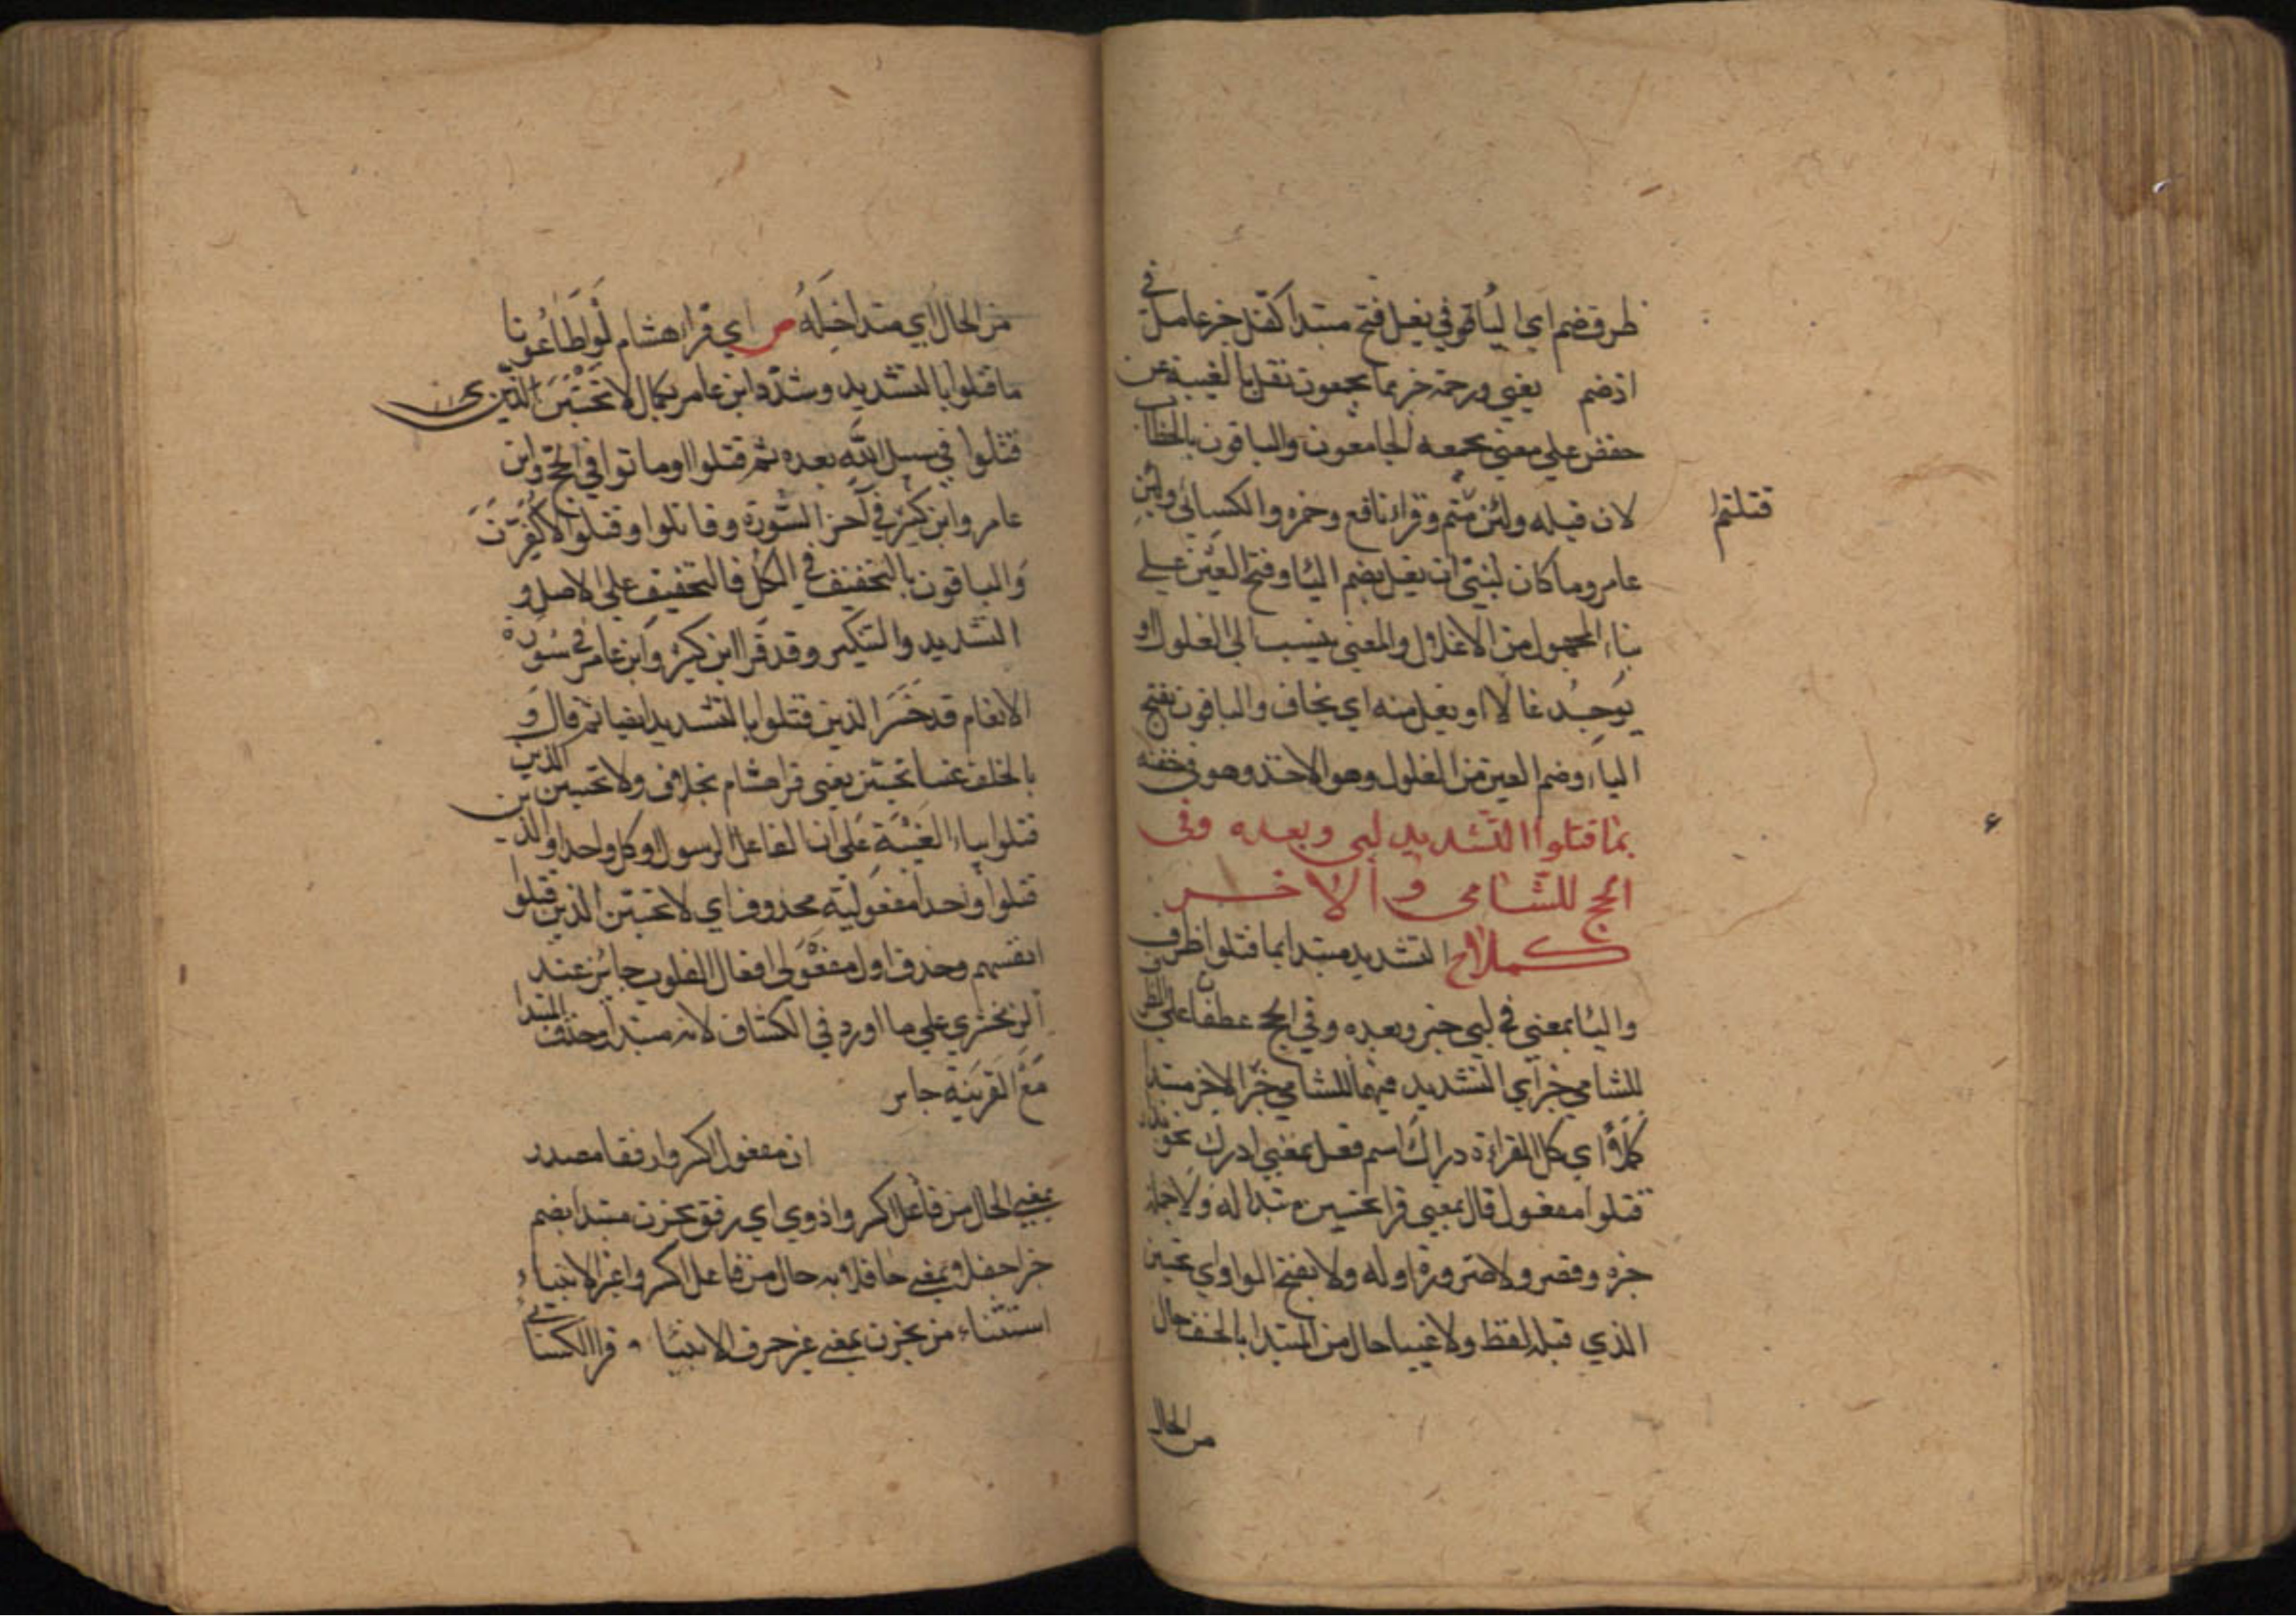 ظرف ضم اي الياء وفي يغل فتح مبتدا كفل خبر عامل في
اذ ضم يعني ورحمة خير مما يجمعون نقل بالغيبة عن
حفص على معنى يجمعه الجامعون والباقون بالخطاب
لان قبله ولئن متم وقرا نافع وحمزه والكسائي وابن
قتلتم
عامر وما كان لنبي ان يغل بضم اليا وفتح الغين على
بناء المجهول من الاغلال والمعنى ينسب الى الغلول او
يوجد غالا او يغل منه اي يخاف والباقون بفتح
الياء وضم الغين من الغلول وهو الاخذ وهو في خفية
بما قتلوا التشديد لبى وبعده وفى
الحج للشامى والاخر
كملا التشديد مبتدا بما قتلوا ظرف
واليا بمعنى في لبي خبر وبعده وفي الحج عطفا على
للشامي خبر اي التشديد فيهما للشامي خبر الاخر مبتدا
كملا اي كل القراءة دراك اسم فعل بمعنى ادرك
قتلوا مفعول قال بمعنى قرا مبتدا له ولا
وقصر ولا ضرورة اوله ولا بفتح الواو اي
الذي قبله لفظ ولا غيبا حال من المبتدا بالخلف حال
من الحال
من الحال اي مبتدا خبر له ص اي قرا هشام لو اطاعونا
ما قتلوا بالتشديد وشدد ابن عامر بكمال لا تحسبن الذين
قتلوا في سبيل الله بعده ثم قتلوا او ماتوا في الحج وابن
عامر وابن كثير في آخر السورة وقاتلوا وقتلوا لاكفرن
والباقون بالتخفيف في الكل فالتخفيف على الاصل و
التشديد والتكير وقد قرا ابن كثير وابن عامر في سورة
الانعام قد خسر الذين قتلوا بالتشديد ايضا ثم قال و
بالخلف غيبا تحسبن يعني قرا هشام بخلاف ولا تحسبن الذين
قتلوا بياء الغيبة على ان الفاعل الرسول او كل واحد او الذين
قتلوا واحد مفعوليه محذوف اي لا تحسبن الذين قتلوا
انفسهم وحذف اول مفعولي افعال القلوب جائز عند
الزمخشري على ما اورد في الكشاف لانه مبتدا وحذف المبتدا
مع القرينة جايز
ان مفعول اكسر وارفقا مصدر
بمعنى الحال من فاعل اكسر واذوي اي رفق يحزن مبتدا بضم
خبر احفل بمعنى حافلا به حال من فاعل اكسر واغير الانبياء
استثناء من يحزن بمعنى غير حرف الانبيا ۰ قرا الكسائي